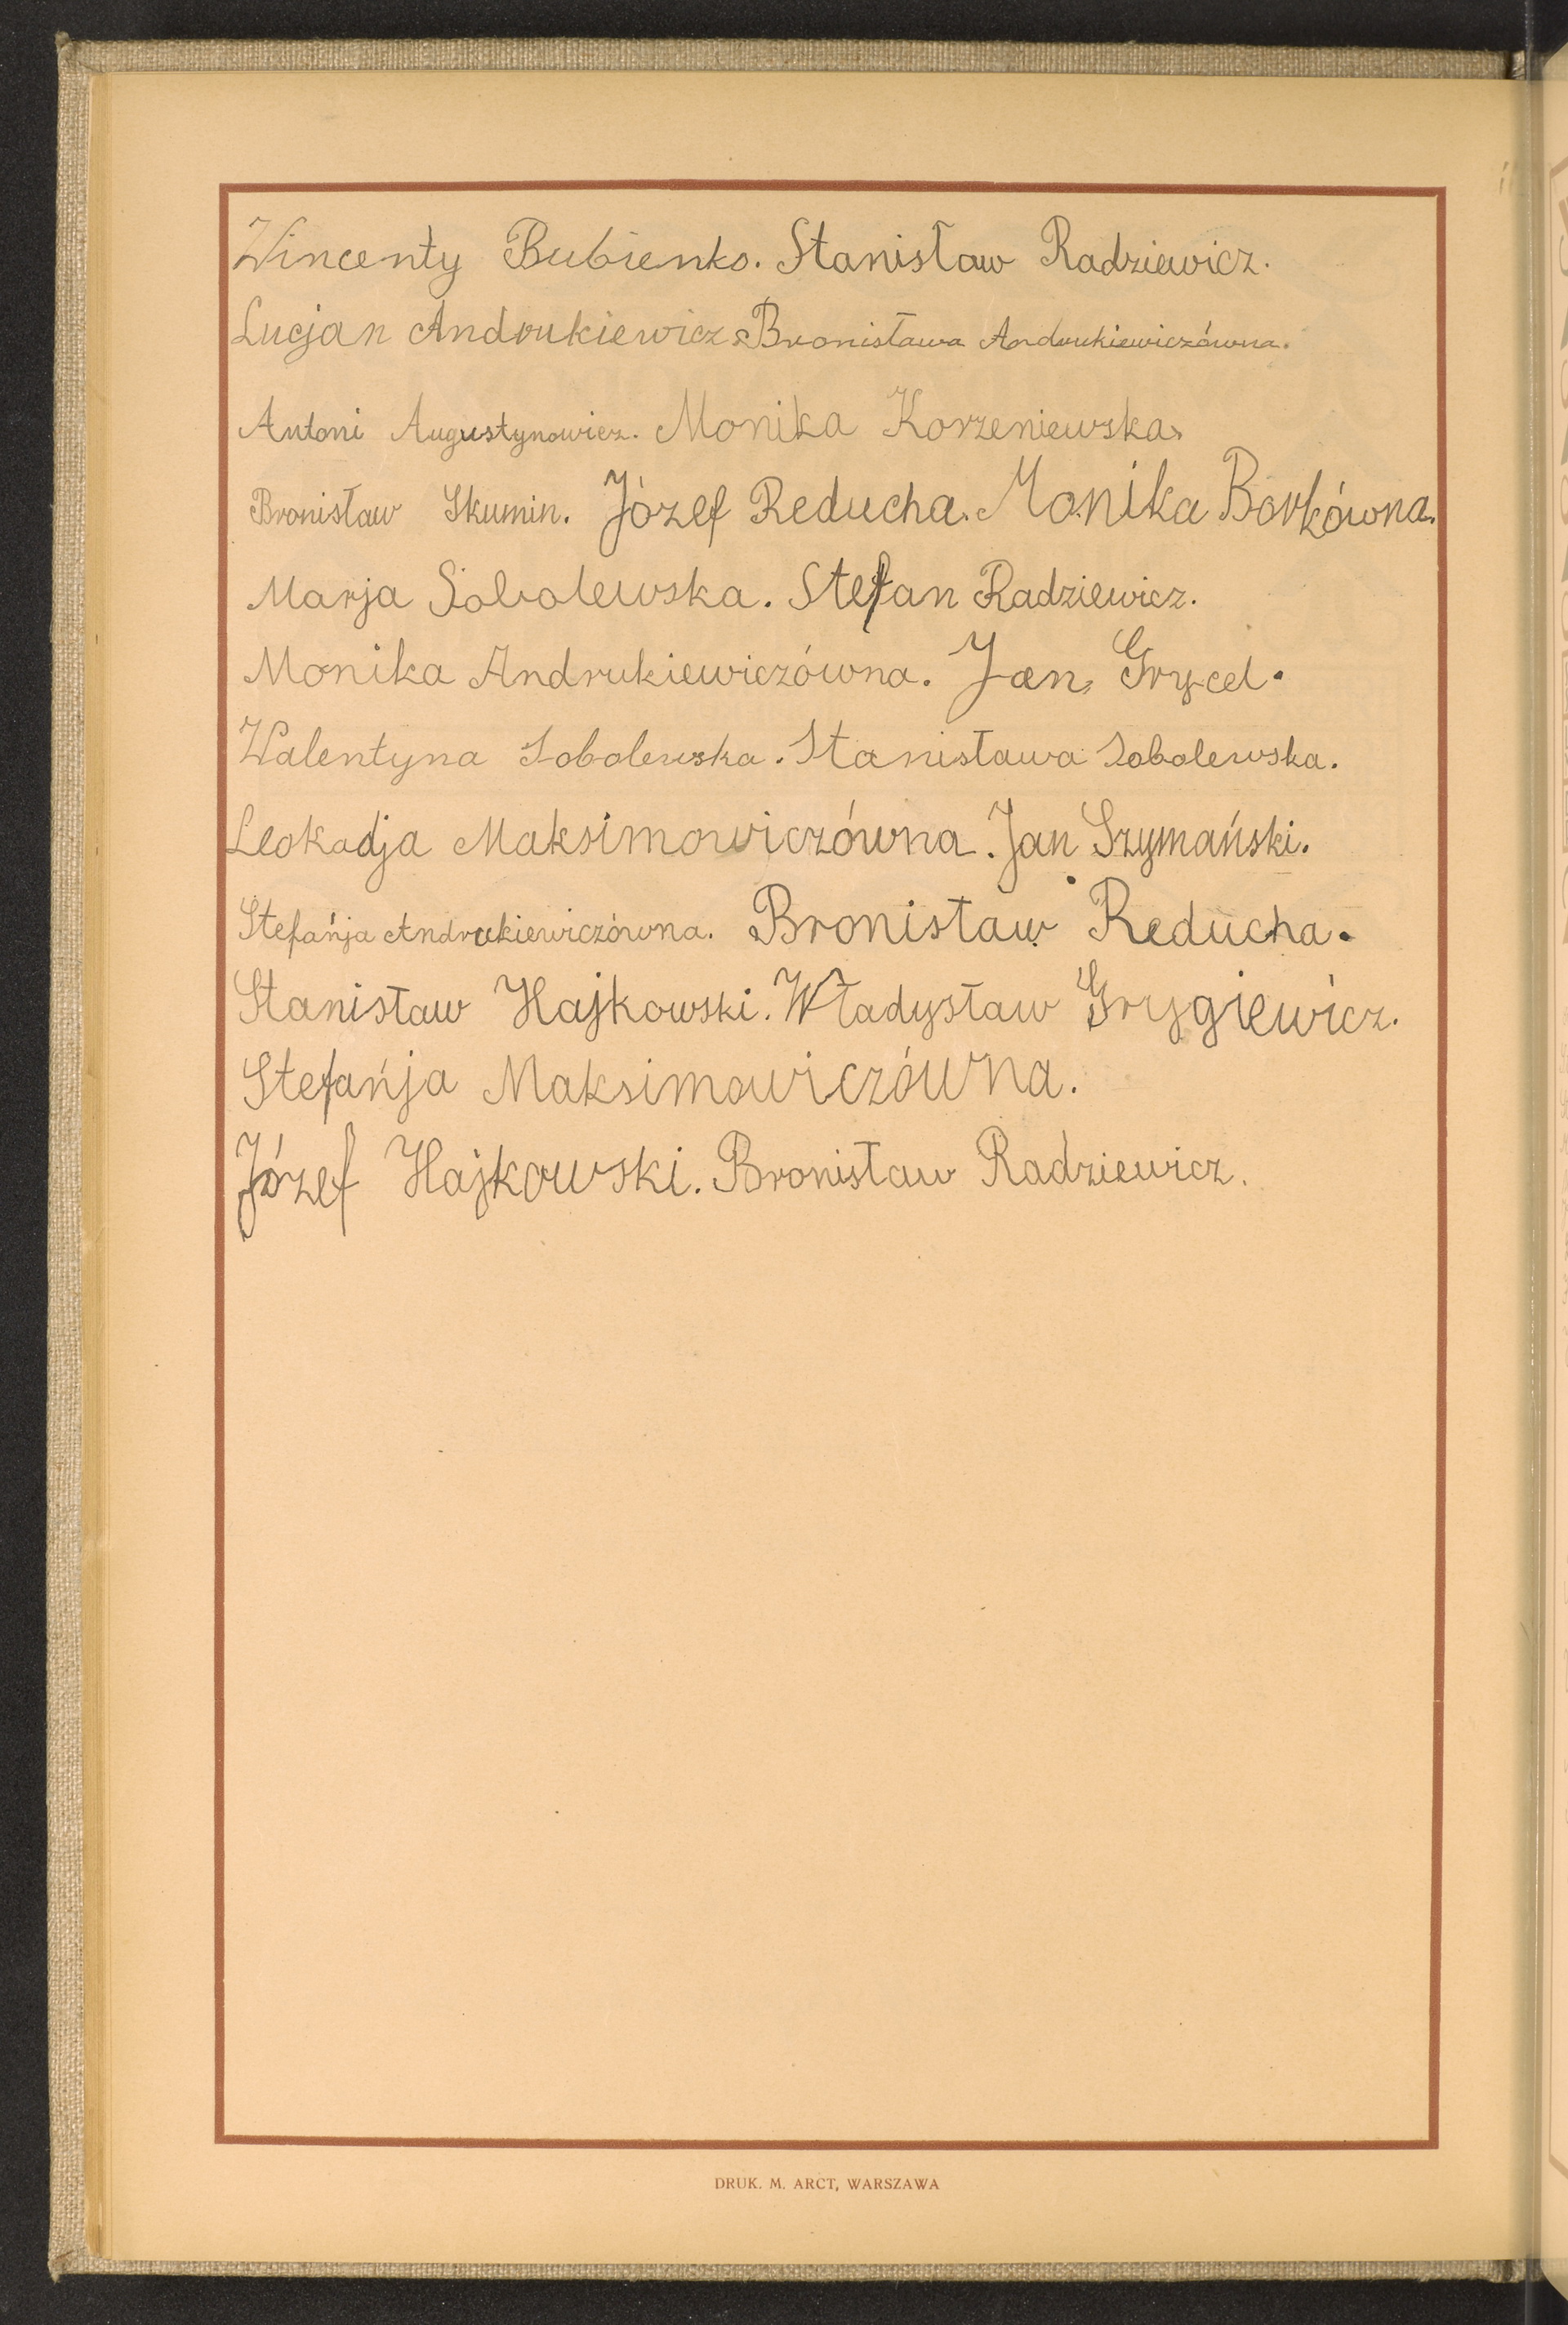 Wincenty Bubienko. Stanisław Radziewicz.
Lucjan Andrukiewicz. Bronisława Andrukiewiczówna.
Antoni Augustynowicz. Monika Korzeniewska.
Bronisław Skumin. Józef Reducha. Monika Borkówna.
Marja Sobolewska. Stefan Radziewicz.
Monika Andrukiewiczówna. Jan Grycel.
Walentyna Sobolewska. Stanisława Sobolewska.
Leokadja Maksimowiczówna. Jan Szymański.
Stefańja Andrukiewiczówna. Bronisław Reducha.
Stanisław Hajkowski. Władysław Grygiewicz.
Stefańja Maksimowiczówna.
Józef Hajkowski. Bronisław Radziewicz.
DRUK. M. ARCT, WARSZAWA